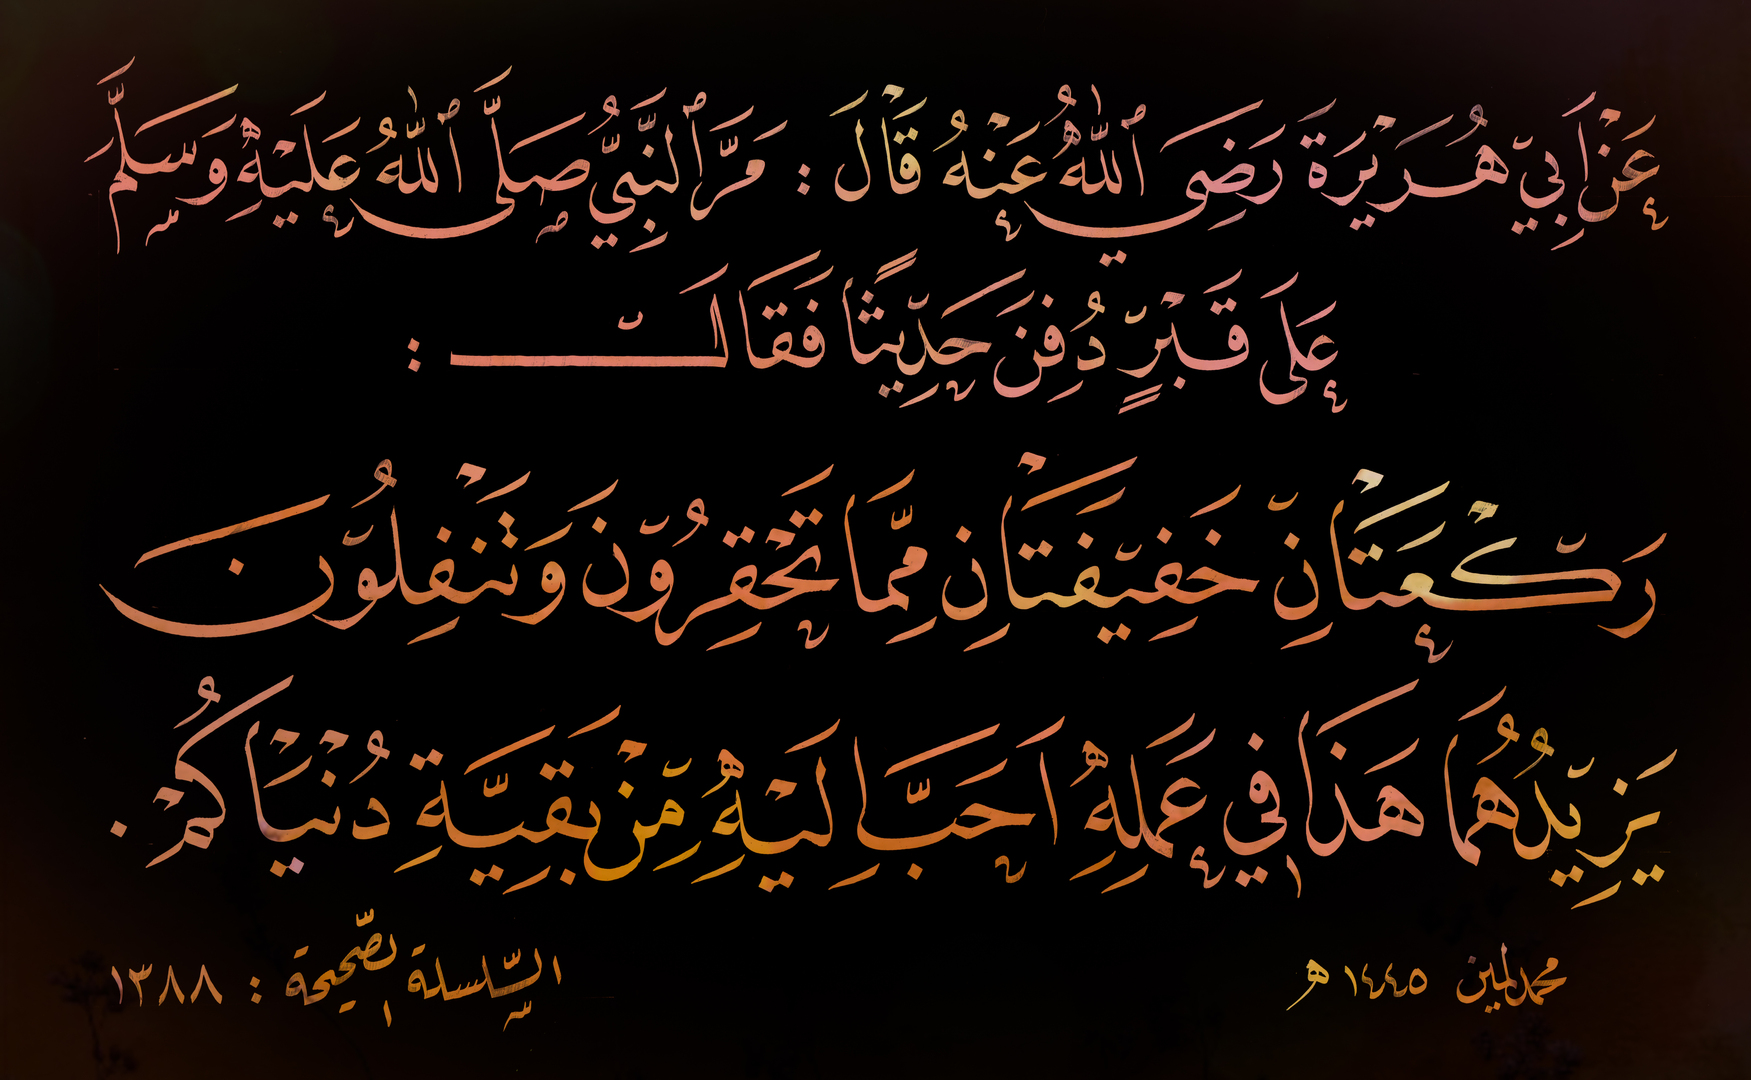 عَنْ أَبِي هُرَيْرَةَ رَضِيَ ٱللَّٰهُ عَنْهُ قَالَ : مَرَّ ٱلنَّبِيُّ صَلَّى ٱللَّٰهُ عَلَيْهِ وَسَلَّمَ
عَلَى قَبْرٍ دُفِنَ حَدِيثًا فَقَالَ :
رَكْعَتَانِ خَفِيفَتَانِ مِمَّا تَحْقِرُونَ وَتَنْفِلُونَ
يَزِيدُهُمَا هَذَا فِي عَمَلِهِ أَحَبُّ إِلَيْهِ مِنْ بَقِيَّةِ دُنْيَاكُمْ .
السلسلة الصّحيحة : ١٣٨٨
١٤٤٥ هـ